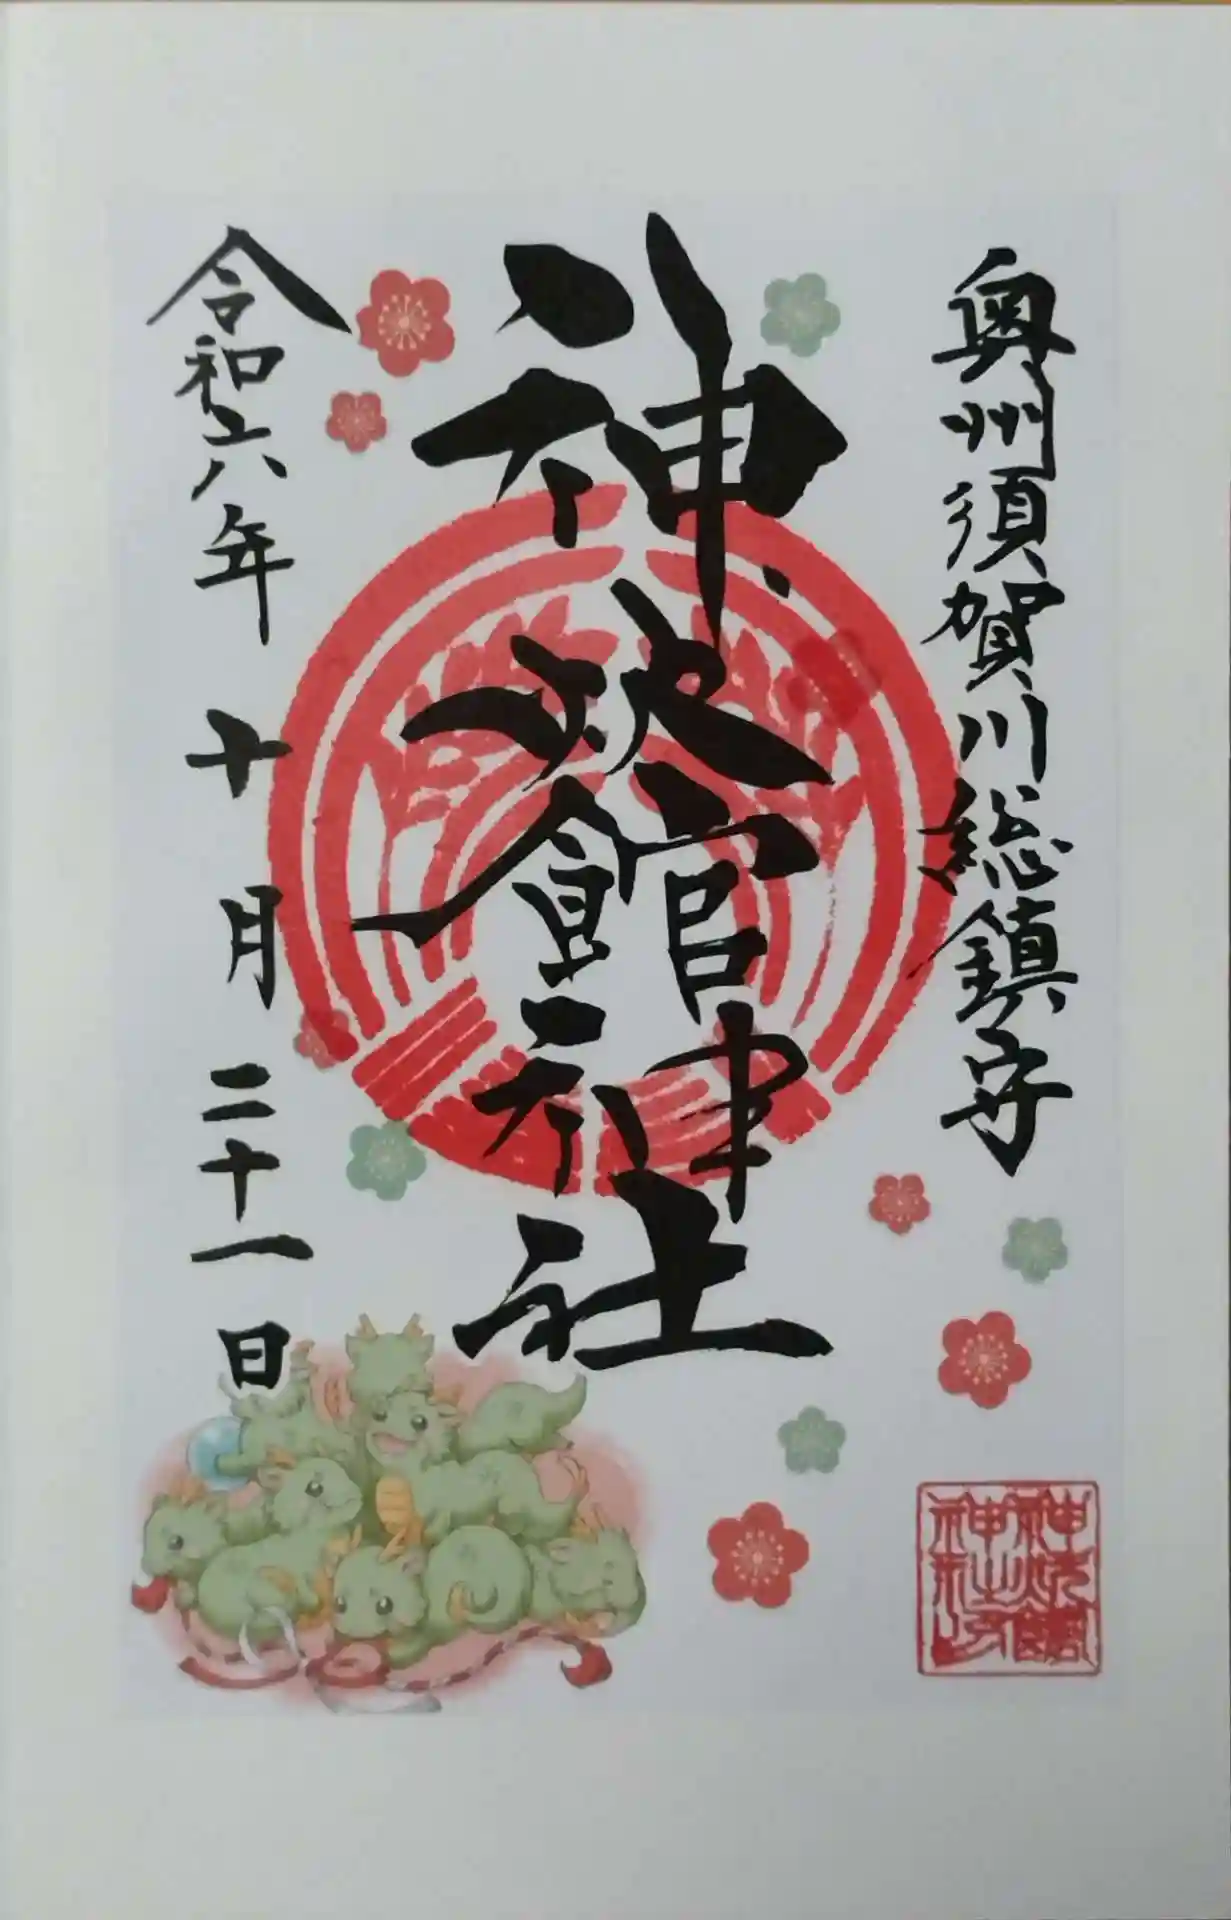 奥州須賀川総鎮守
神炊館神社
令和六年十月二十一日
神炊館
神社